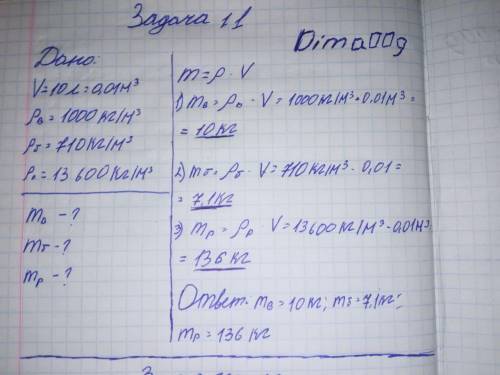 Задача 11
Dima00g
Дано:
V=10л=0,01м³
ρв=1000кг/м³
ρб=710кг/м³
ρр=13600кг/м³
mв-?
mб-?
mр-?
m=ρ·V
1) mв=ρв·V=1000кг/м³·0,01м³=
=10кг
2) mб=ρб·V=710кг/м³·0,01=
=7,1кг
3) mр=ρр V=13600кг/м³·0,01м³
=136кг
Ответ: mв=10кг; mб=7,1кг;
mр=136кг